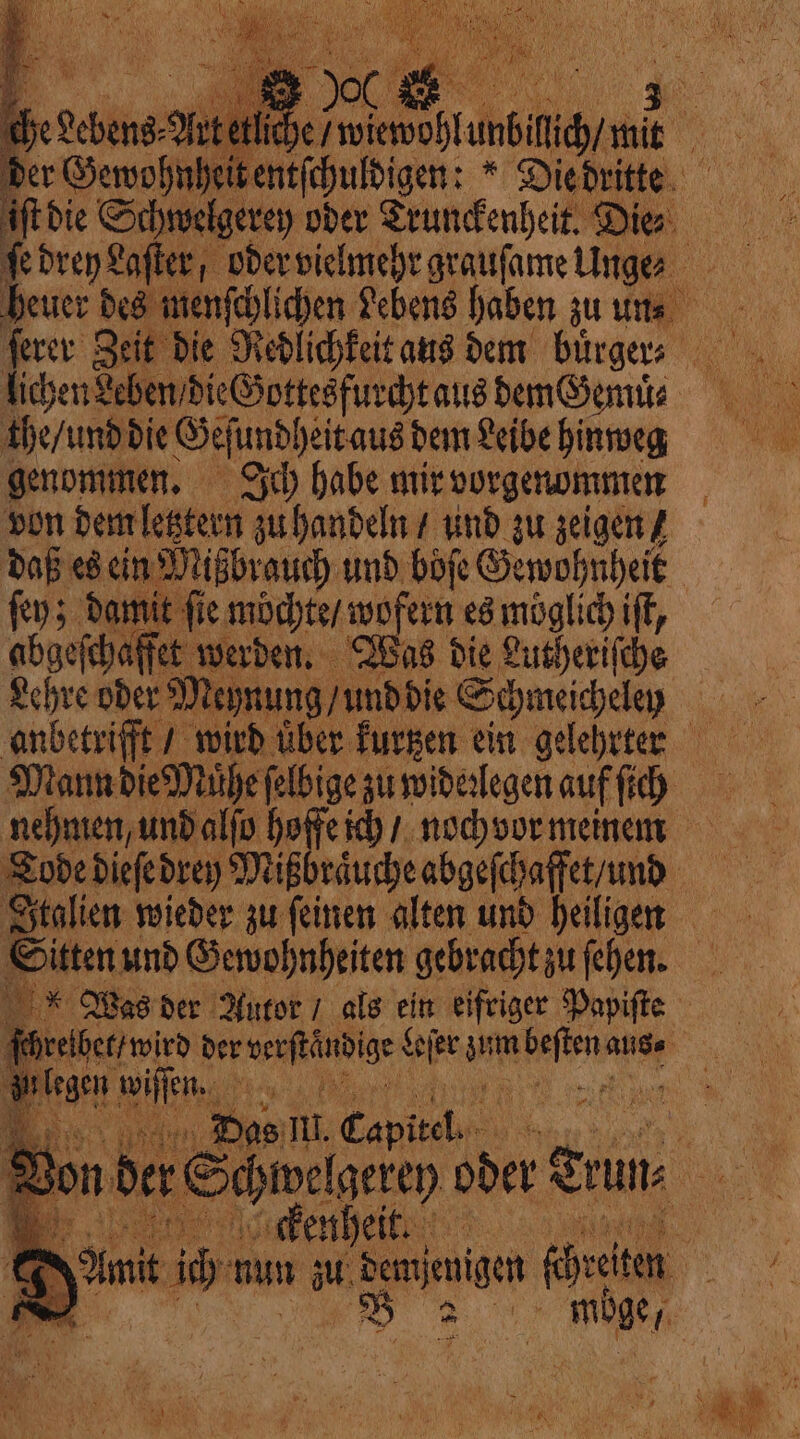 )o( 3
che Lebens-Art etliche / wiewohl unbillich / mit
der Gewohnheit entſchuldigen: * Die dritte
iſt die Schwelgerey oder Trunckenheit. Die-
ſe drey Laſter, oder vielmehr grauſame Unge-
heuer des menſchlichen Lebens haben zu un-
ſerer Zeit die Redlichkeit aus dem buͤrger-
lichen Leben / die Gottesfurcht aus dem Gemuͤ-
the / und die Geſundheit aus dem Leibe hinweg
genommen. Ich habe mir vorgenommen
von dem letztern zu handeln / und zu zeigen /
daß es ein Mißbrauch und boͤſe Gewohnheit
ſey; damit ſie moͤchte / wofern es moͤglich iſt,
abgeſchaffet werden. Was die Lutheriſche
Lehre oder Meynung / und die Schmeicheley
anbetrifft / wird uͤber kurtzen ein gelehrter
Mann die Muͤhe ſelbige zu widerlegen auf ſich
nehmen, und alſo hoffe ich / noch vor meinem
Tode dieſe drey Mißbraͤuche abgeſchaffet / und
Italien wieder zu ſeinen alten und heiligen
Sitten und Gewohnheiten gebracht zu ſehen.
* Was der Autor / als ein eifriger Papiſte
ſchreibet / wird der verſtaͤndige Leſer zum beſten aus-
zu legen wiſſen.
Das III. Capitel.
Von der Schwelgerey oder Trun-
ckenheit.
DAmit ich nun zu demjenigen ſchreiten
B 2 moͤge,